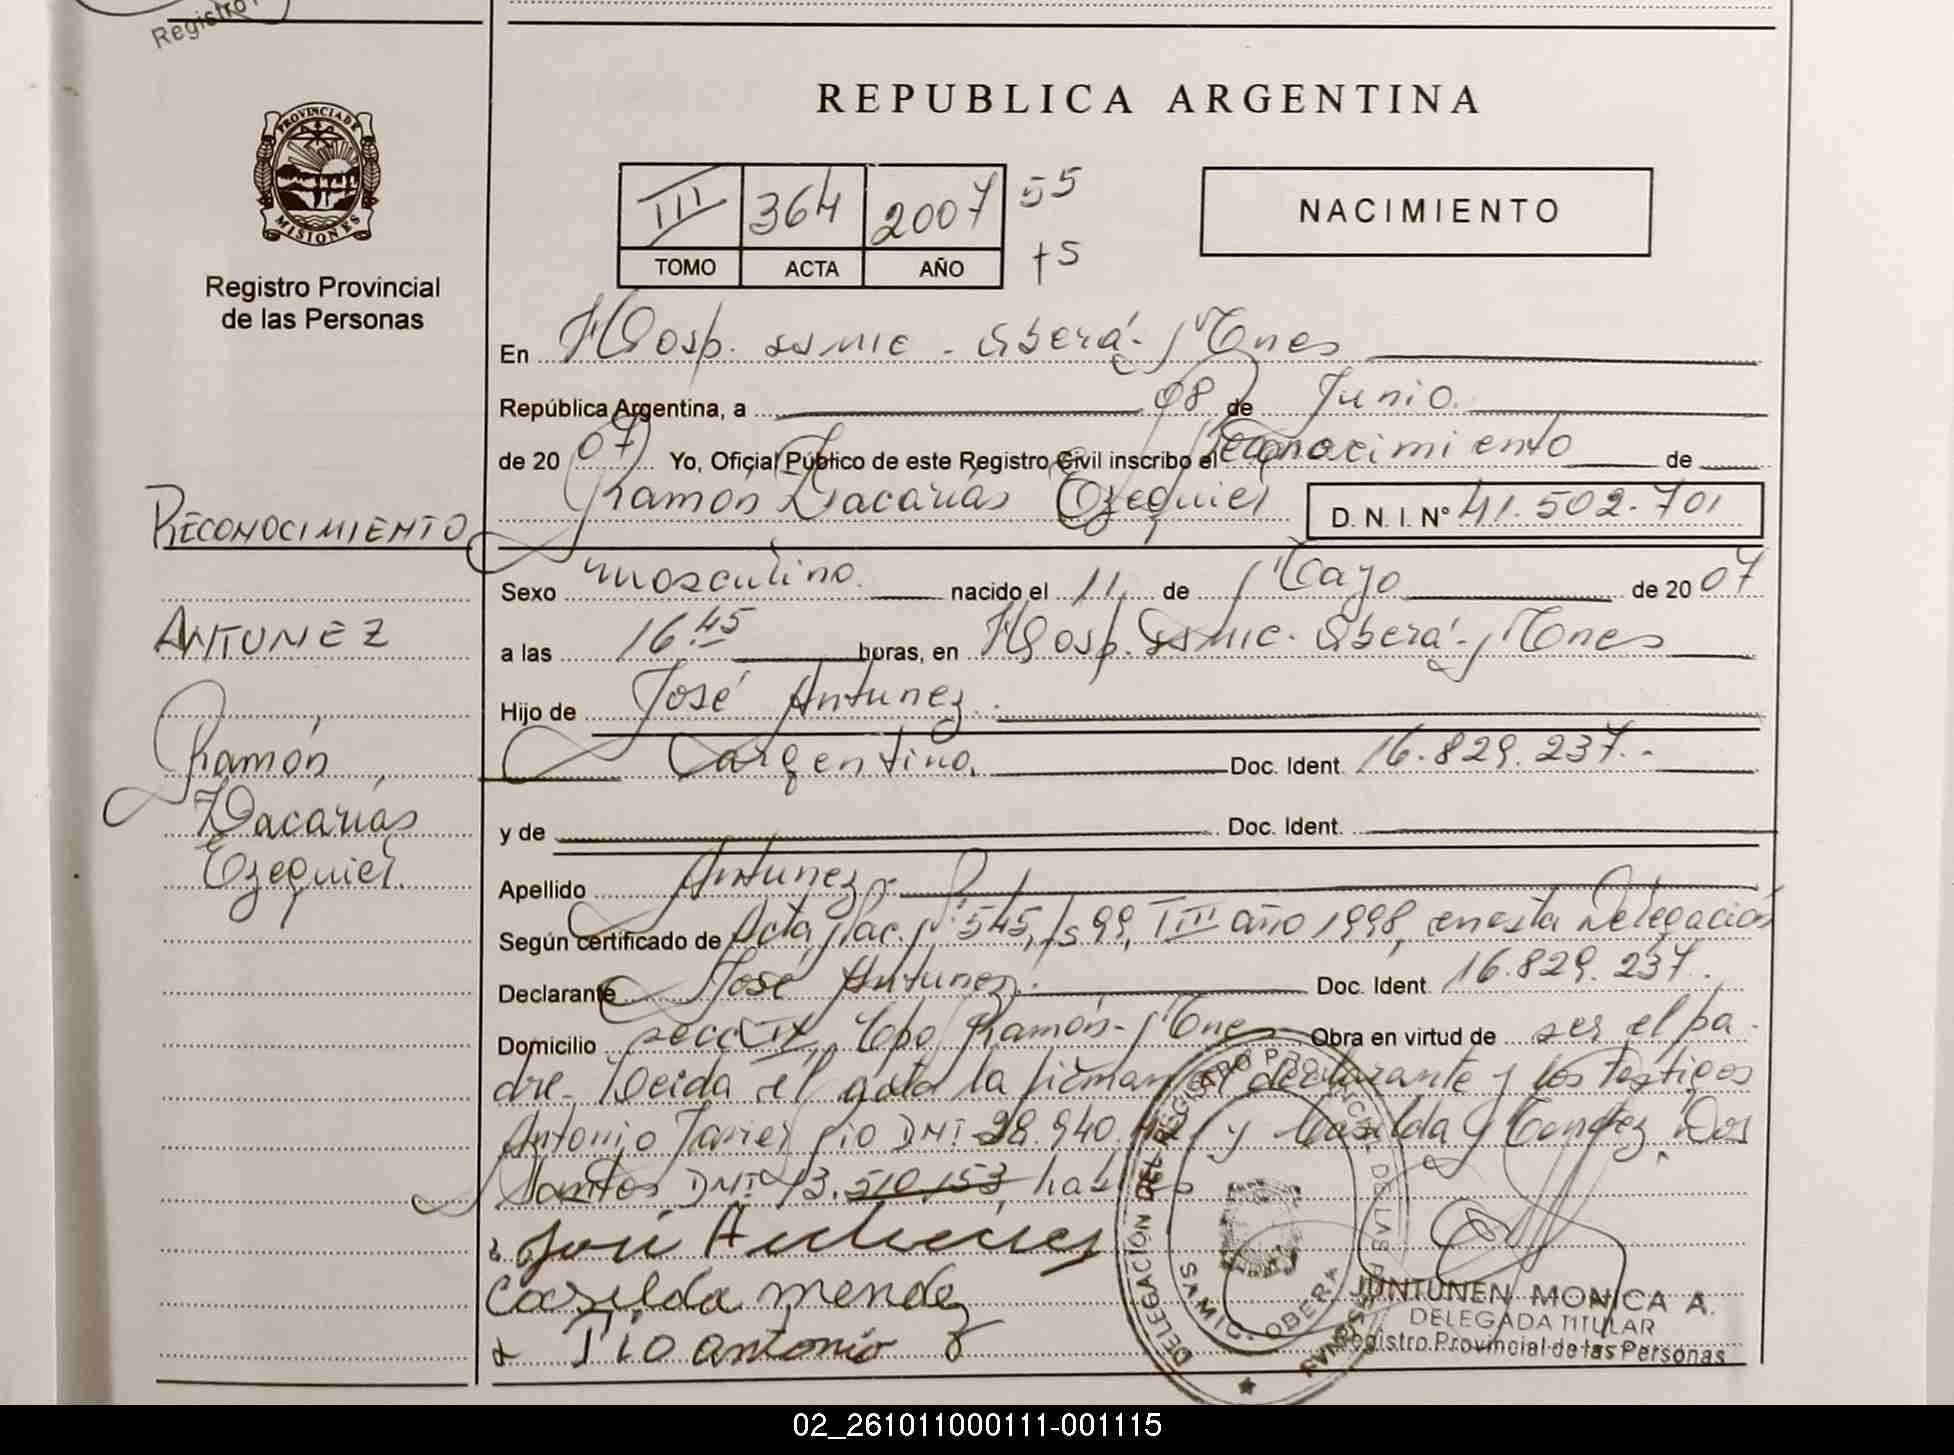 Registro
REPUBLICA ARGENTINA
PROVINCIA DE
MISIONES
Registro Provincial
de las Personas
III 364 2007 55
TOMO ACTA AÑO +5
NACIMIENTO
En Hosp. SAMIC - Oberá - Mnes
República Argentina, a 08 de Junio
de 2007 Yo, Oficial Público de este Registro Civil inscribo el Reconocimiento de
Ramón Zacarías Ezequiel D. N. I. N° 41.502.701
RECONOCIMIENTO
ANTUNEZ
Ramón
Zacarías
Ezequiel.
Sexo masculino. nacido el 11 de Mayo de 2007
a las 16.45 horas, en Hosp. SAMIC - Oberá - Mnes
Hijo de José Antunez
argentino. Doc. Ident. 16.829.237.-
y de Doc. Ident.
Apellido Antunez
Según certificado de Acta Nac. N° 545, fs 99, T III año 1998, en esta Delegación
Declarante José Antunez. Doc. Ident. 16.829.237.
Domicilio secc. Cpo Ramón - Mnes Obra en virtud de ser el pa-
dre. Leida el acta la firman el declarante y los testigos
Antonio Javier Pio DNI 28.940. y Casilda Mendez Dos
Santos DNI 13.510.153, habiles
José Antunez
Casilda mendez
Pio antonio J
DELEGACION DEL REGISTRO PROVINCIAL DE LAS PERSONAS
SAMIC - OBERA
JUNTUNEN MONICA A.
DELEGADA TITULAR
Registro Provincial de las Personas
02_261011000111-001115